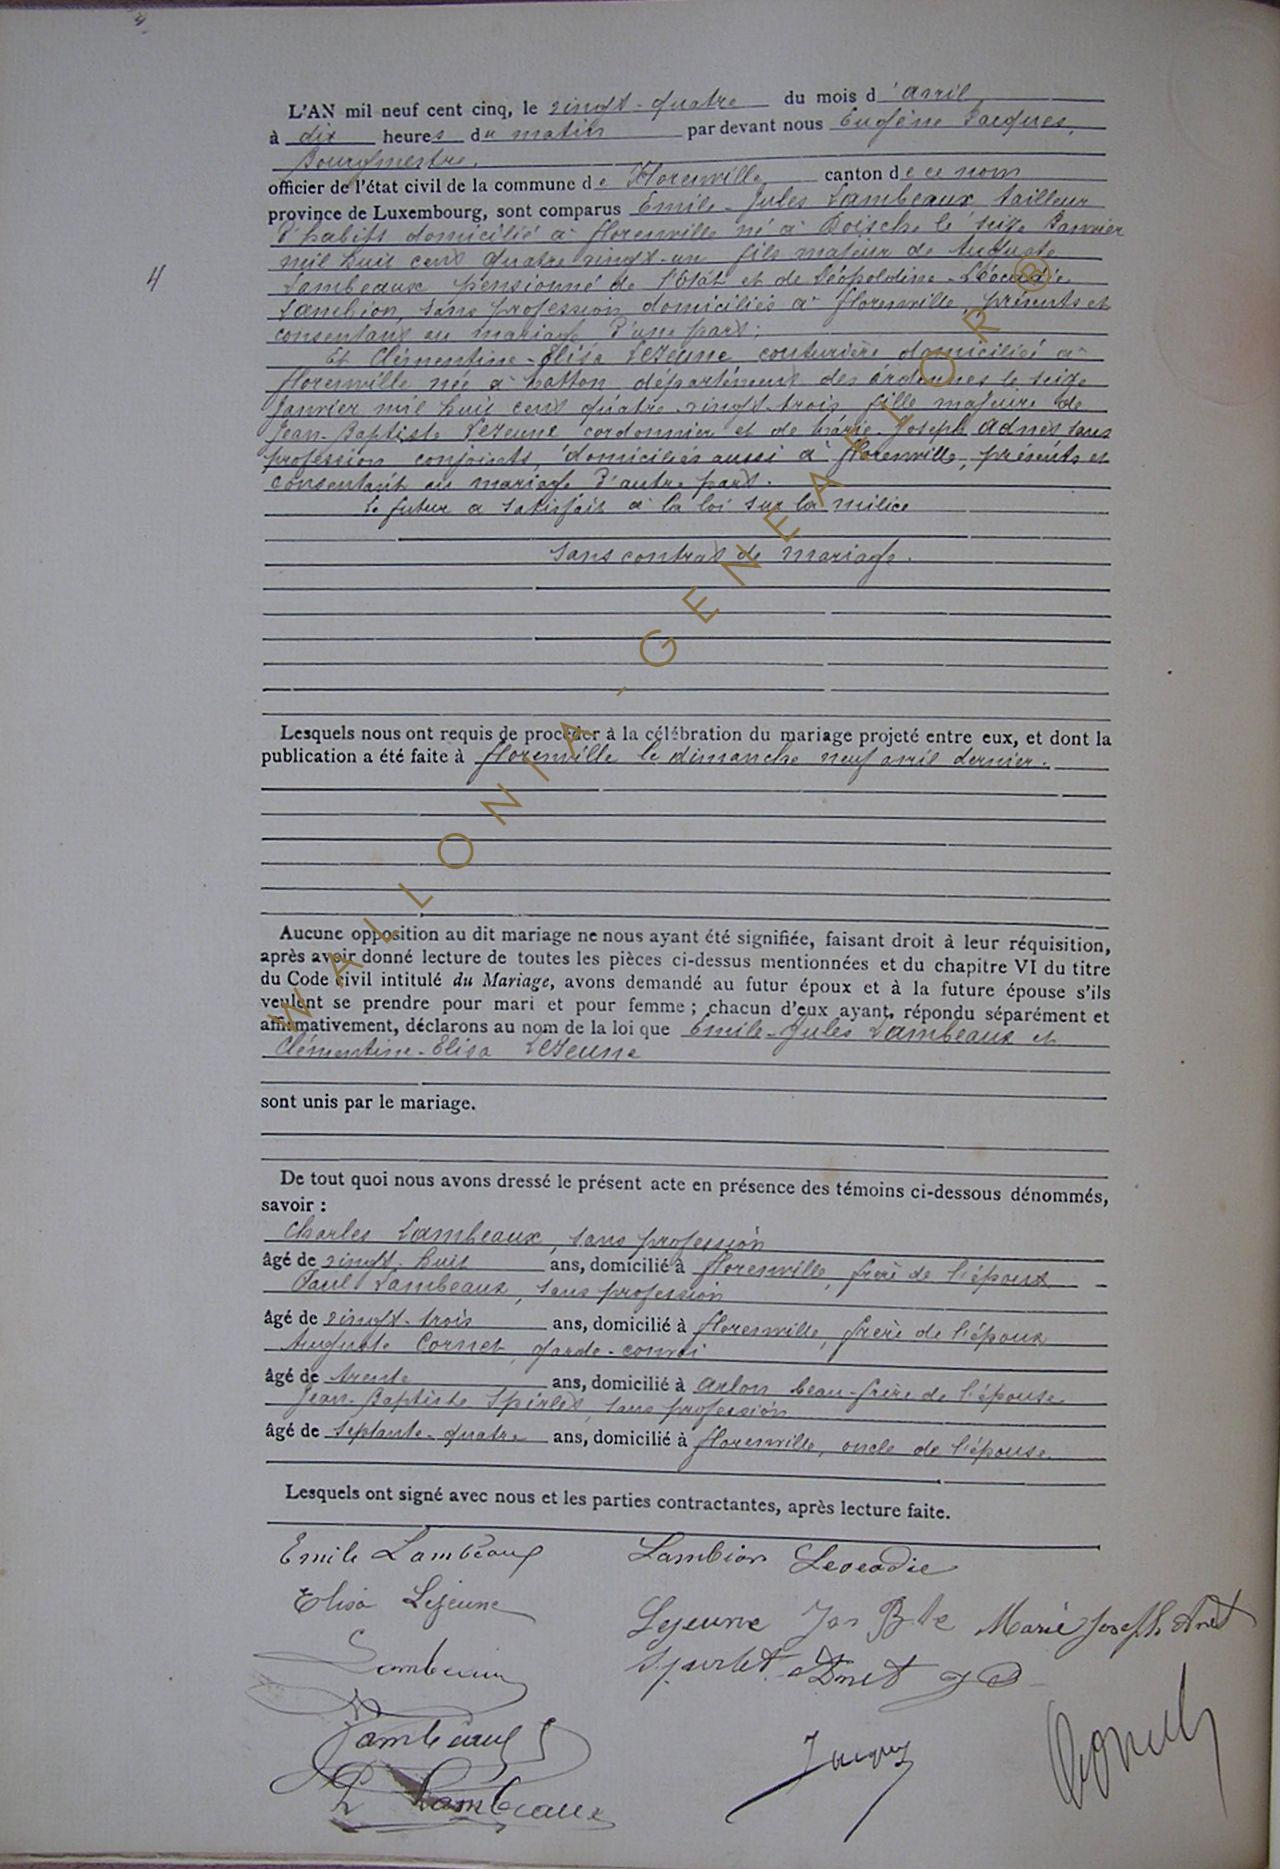 L'AN mil neuf cent cinq, le vingt-quatre du mois d'avril
à dix heures du matin par devant nous Eugène Jacques,
Bourgmestre,
officier de l'état civil de la commune de Florenville canton de ce nom
province de Luxembourg, sont comparus Emile-Jules Lambeaux tailleur
d'habits domicilié à Florenville né à Doische le seize Janvier
mil huit cent quatre vingt-un fils majeur de Auguste
Lambeaux pensionné de l'Etat et de Léopoldine-Léocadie
Lambion, sans profession domiciliés à Florenville, présents et
consentant au mariage d'une part;
4
Et Clémentine-Elisa Lejeune couturière domiciliée à
Florenville née à Matton département des Ardennes le seize
Janvier mil huit cent quatre-vingt-trois fille majeure de
Jean-Baptiste Lejeune cordonnier et de Marie-Joseph Adnet sans
profession conjoints, domiciliés aussi à Florenville, présents et
consentant au mariage d'autre part.
Le futur a satisfait à la loi sur la milice
Sans contrat de mariage.
Lesquels nous ont requis de procéder à la célébration du mariage projeté entre eux, et dont la
publication a été faite à Florenville le dimanche neuf avril dernier.
Aucune opposition au dit mariage ne nous ayant été signifiée, faisant droit à leur réquisition,
après avoir donné lecture de toutes les pièces ci-dessus mentionnées et du chapitre VI du titre
du Code civil intitulé du Mariage, avons demandé au futur époux et à la future épouse s'ils
veulent se prendre pour mari et pour femme; chacun d'eux ayant, répondu séparément et
affirmativement, déclarons au nom de la loi que Emile-Jules Lambeaux et
Clémentine-Elisa Lejeune
sont unis par le mariage.
De tout quoi nous avons dressé le présent acte en présence des témoins ci-dessous dénommés,
savoir :
Charles Lambeaux, sans profession
âgé de vingt-huit ans, domicilié à Florenville, frère de l'époux
Paul Lambeaux, sans profession
âgé de vingt-trois ans, domicilié à Florenville, frère de l'époux
Auguste Cornet, garde-convoi
âgé de trente ans, domicilié à Arlon beau-frère de l'épouse
Jean-Baptiste Spirlet, sans profession
âgé de septante-quatre ans, domicilié à Florenville, oncle de l'épouse
Lesquels ont signé avec nous et les parties contractantes, après lecture faite.
Emile Lambeaux Lambion Leocadie
Elisa Lejeune Lejeune Jan Bte Marie Joseph Adnet
Lambeaux Spirlet Adnet
Lambeaux
Jacques
P Lambeaux
WALLONIA-GENEALOR®